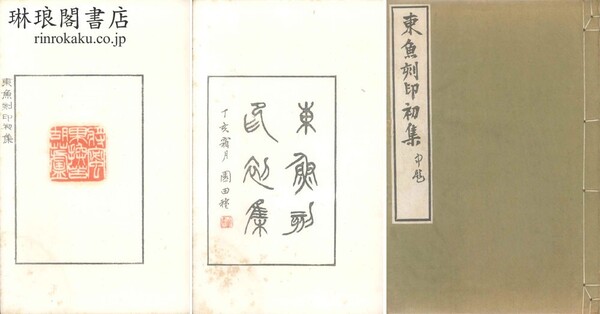 琳琅閣書店
rinrokaku.co.jp
東魚刻印初集
東魚刻
印初集
丁亥霜月 園田穆
東魚刻印初集